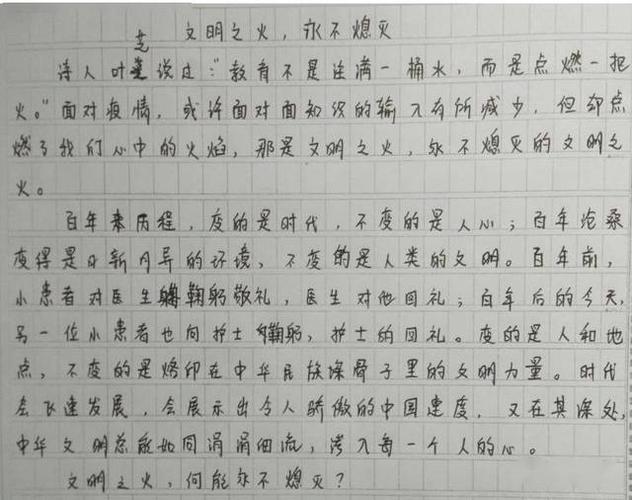 文明之火，永不熄灭
诗人叶芝说过："教育不是注满一桶水，而是点燃一把
火。"面对疫情，或许面对面知识的输入有所减少，但却点
燃了我们心中的火焰，那是文明之火，永不熄灭的文明之
火。
百年来历程，变的是时代，不变的是人心；百年沧桑
变得是日新月异的环境、不变的是人类的文明。百年前，
小患者对医生鞠躬敬礼，医生对他回礼；百年后的今天，
另一位小患者也向护士鞠躬，护士的回礼。变的是人和地
点，不变的是烙印在中华民族深骨子里的文明力量。时代
会飞速发展，会展示出令人骄傲的中国速度，又在其深处，
中华文明总能如同涓涓细流，渗入每一个人的心。
文明之火，何能永不熄灭？